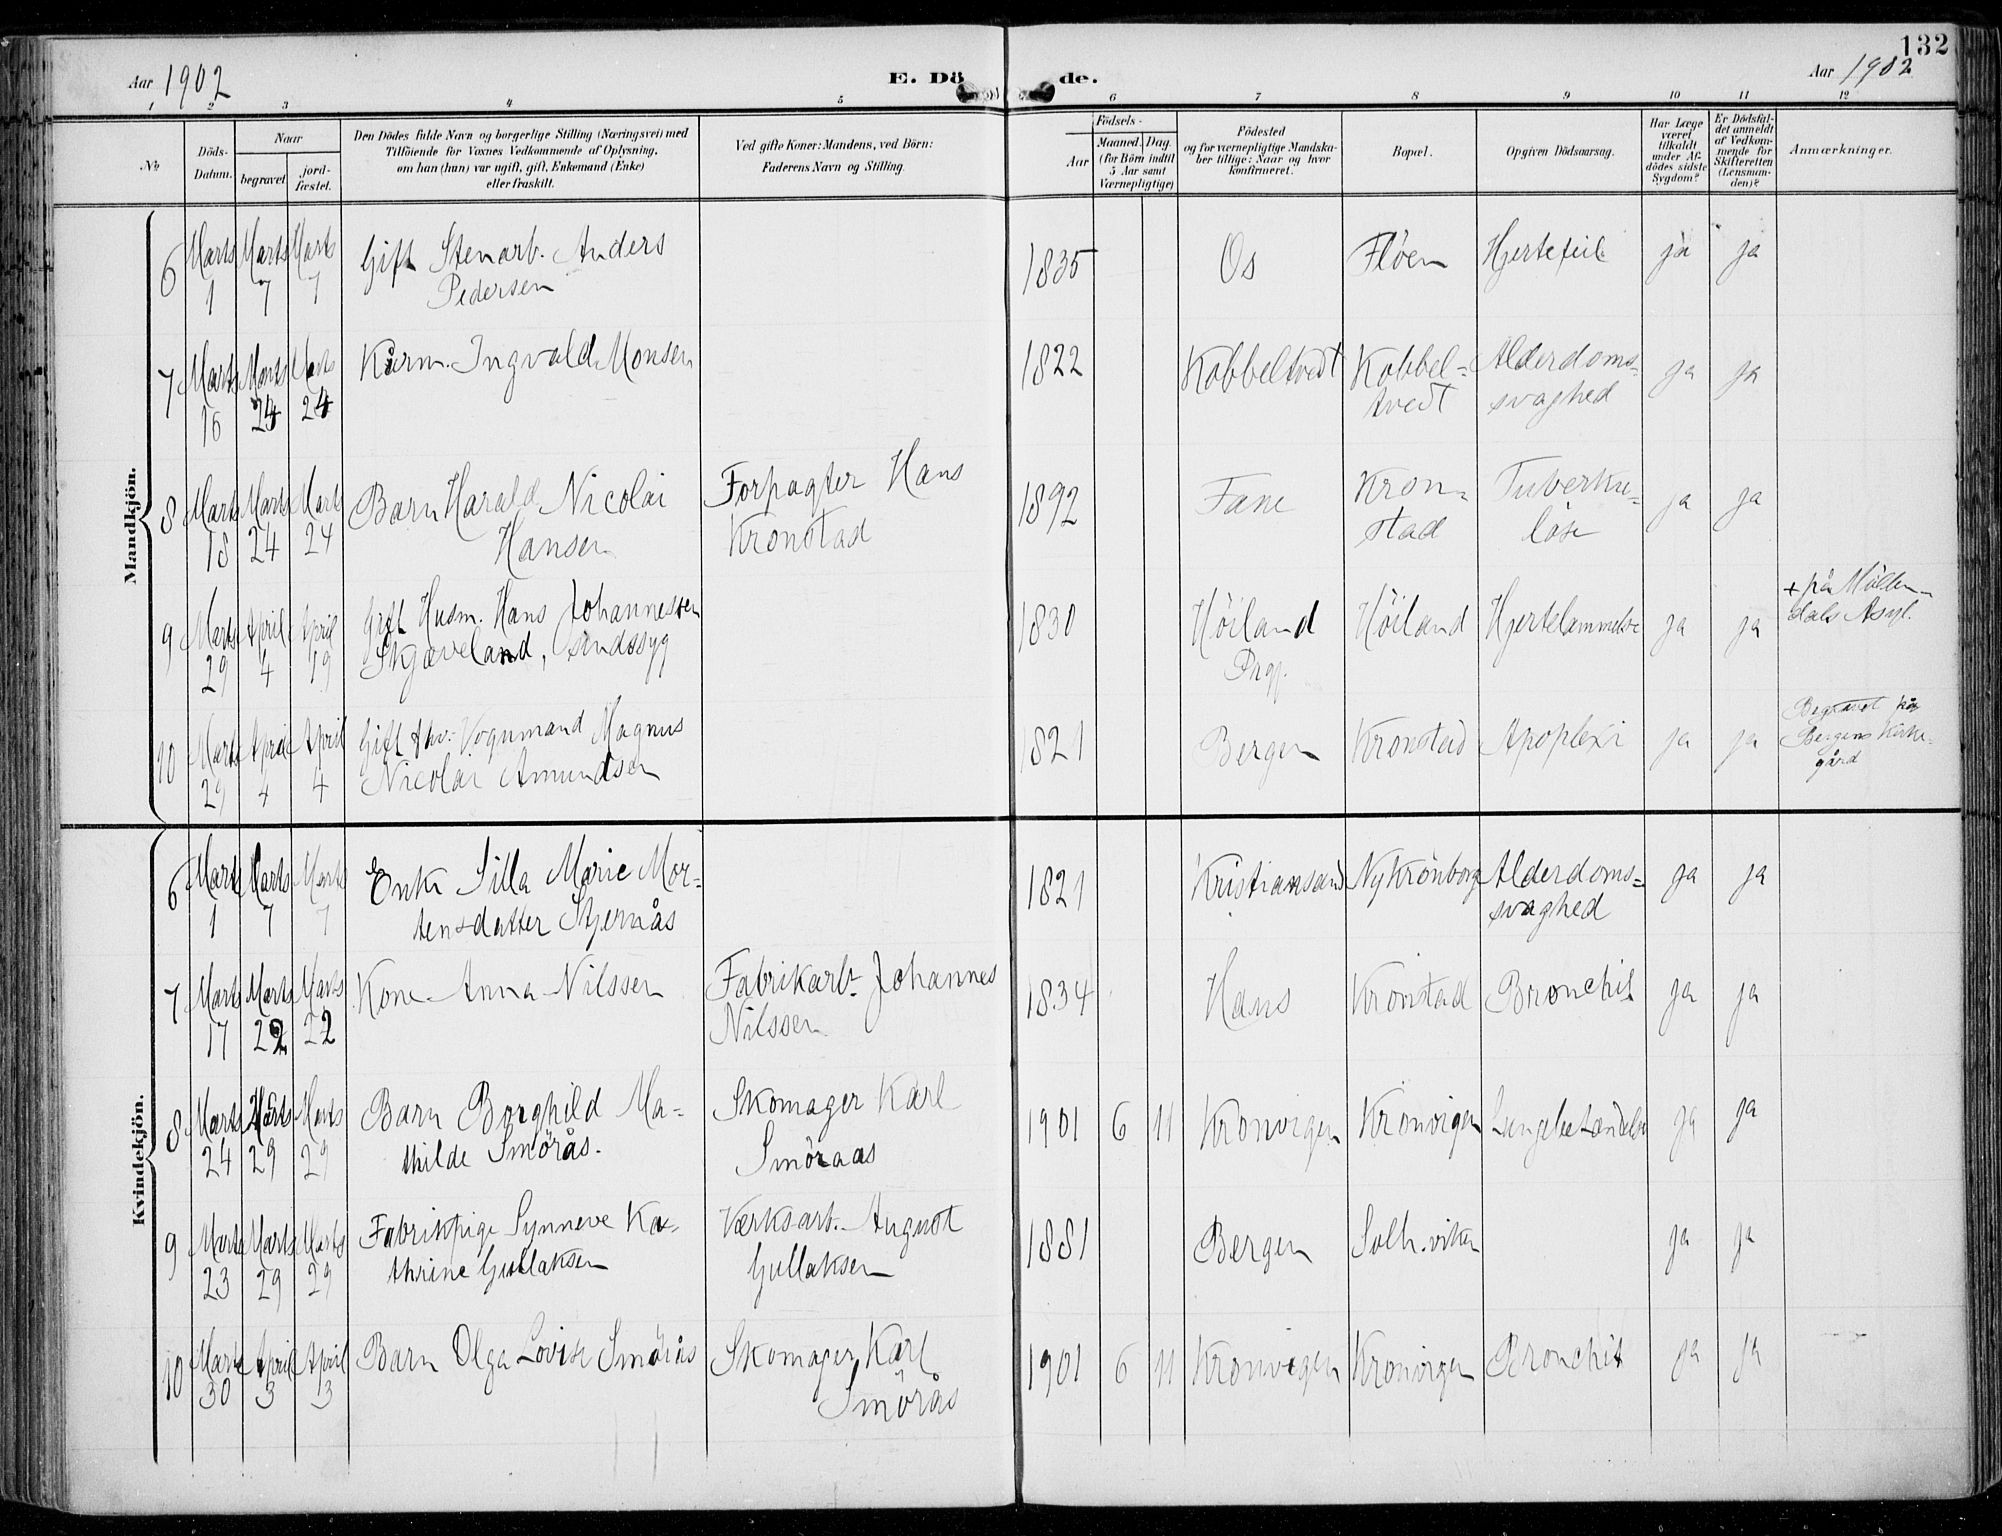 132
Aar 1902
E. Dö de.
Aar 1902
1 2 3 4 5 6 7 8 9 10 11 12
No.
Döds-Datum.
Naar
begravet
jord-fæstet.
Den Dödes fulde Navn og borgerlige Stilling (Næringsvei) med
Tilföiende for Voxnes Vedkommende af Oplysning,
om han (hun) var ugift, gift, Enkemand (Enke)
eller fraskilt.
Ved gifte Koner: Mandens, ved Börn:
Faderens Navn og Stilling.
Födsels-
Aar
Maaned. Dag.
(for Börn indtil
5 Aar samt
Værnepligtige)
Födested
og for værnepligtige Mandska-
ber tillige: Naar og hvor
konfirmeret.
Bopæl.
Opgiven Dödsaarsag.
Har Læge
været
tilkaldt
under Af-
dödes sidste
Sygdom?
Er Dödsfal-
det anmeldt
af Vedkom-
mende for
Skifteretten
(Lensman-
den)?
Anmærkninger.
Mandkjön.
6 Marts 1 Marts 7 Marts 7 Gift Stenarb. Anders
Pedersen 1835 Os Fløen Hjertefeil ja ja
7 Marts 16 Marts 24 Marts 24 Kårm. Ingvald Monsen 1822 Kobbeltvedt Kobbel-
tvedt Alderdoms-
svaghed ja ja
8 Marts 18 Marts 24 Marts 24 Barn Harald Nicolai
Hansen Forpagter Hans
Kronstad 1892 Fane Kron-
stad Tuberku-
løse ja ja
9 Marts 29 April 4 April 19 Gift Husm. Hans Johannessen
Skjæveland, sindssyg 1830 Höiland
Prgj. Höiland Hjertelammelse ja ja + på Möllen-
dals Asyl.
10 Marts 29 April 4 April 4 Gift fhv. Vognmand Magnus
Nicolai Amundsen 1821 Bergen Kronstad Apoplexi ja ja Begravet på
Bergens Kirke-
gård
Kvindekjön.
6 Marts 1 Marts 7 Marts 7 Enke Silla Marie Mor-
tensdatter Stjernås 1821 Kristiansand Ny Krönborg Alderdoms-
svaghed ja ja
7 Marts 17 Marts 22 Marts 22 Kone Anna Nilssen Fabrikarb. Johannes
Nilssen 1834 Hans Kronstad Bronchit ja ja
8 Marts 24 Marts 29 Marts 29 Barn Borghild Ma-
thilde Smörås. Skomager Karl
Smöraas 1901 6 11 Kronvigen Kronvigen Lungebetændelse ja ja
9 Marts 23 Marts 29 Marts 29 Fabrikpige Synneve Ka-
thrine Gullaksen Værksarb. August
Gullaksen 1881 Bergen Solh.viken ja ja
10 Marts 30 April 3 April 3 Barn Olga Lovise Smörås Skomager Karl
Smörås 1901 6 11 Kronvigen Kronvigen Bronchit ja ja